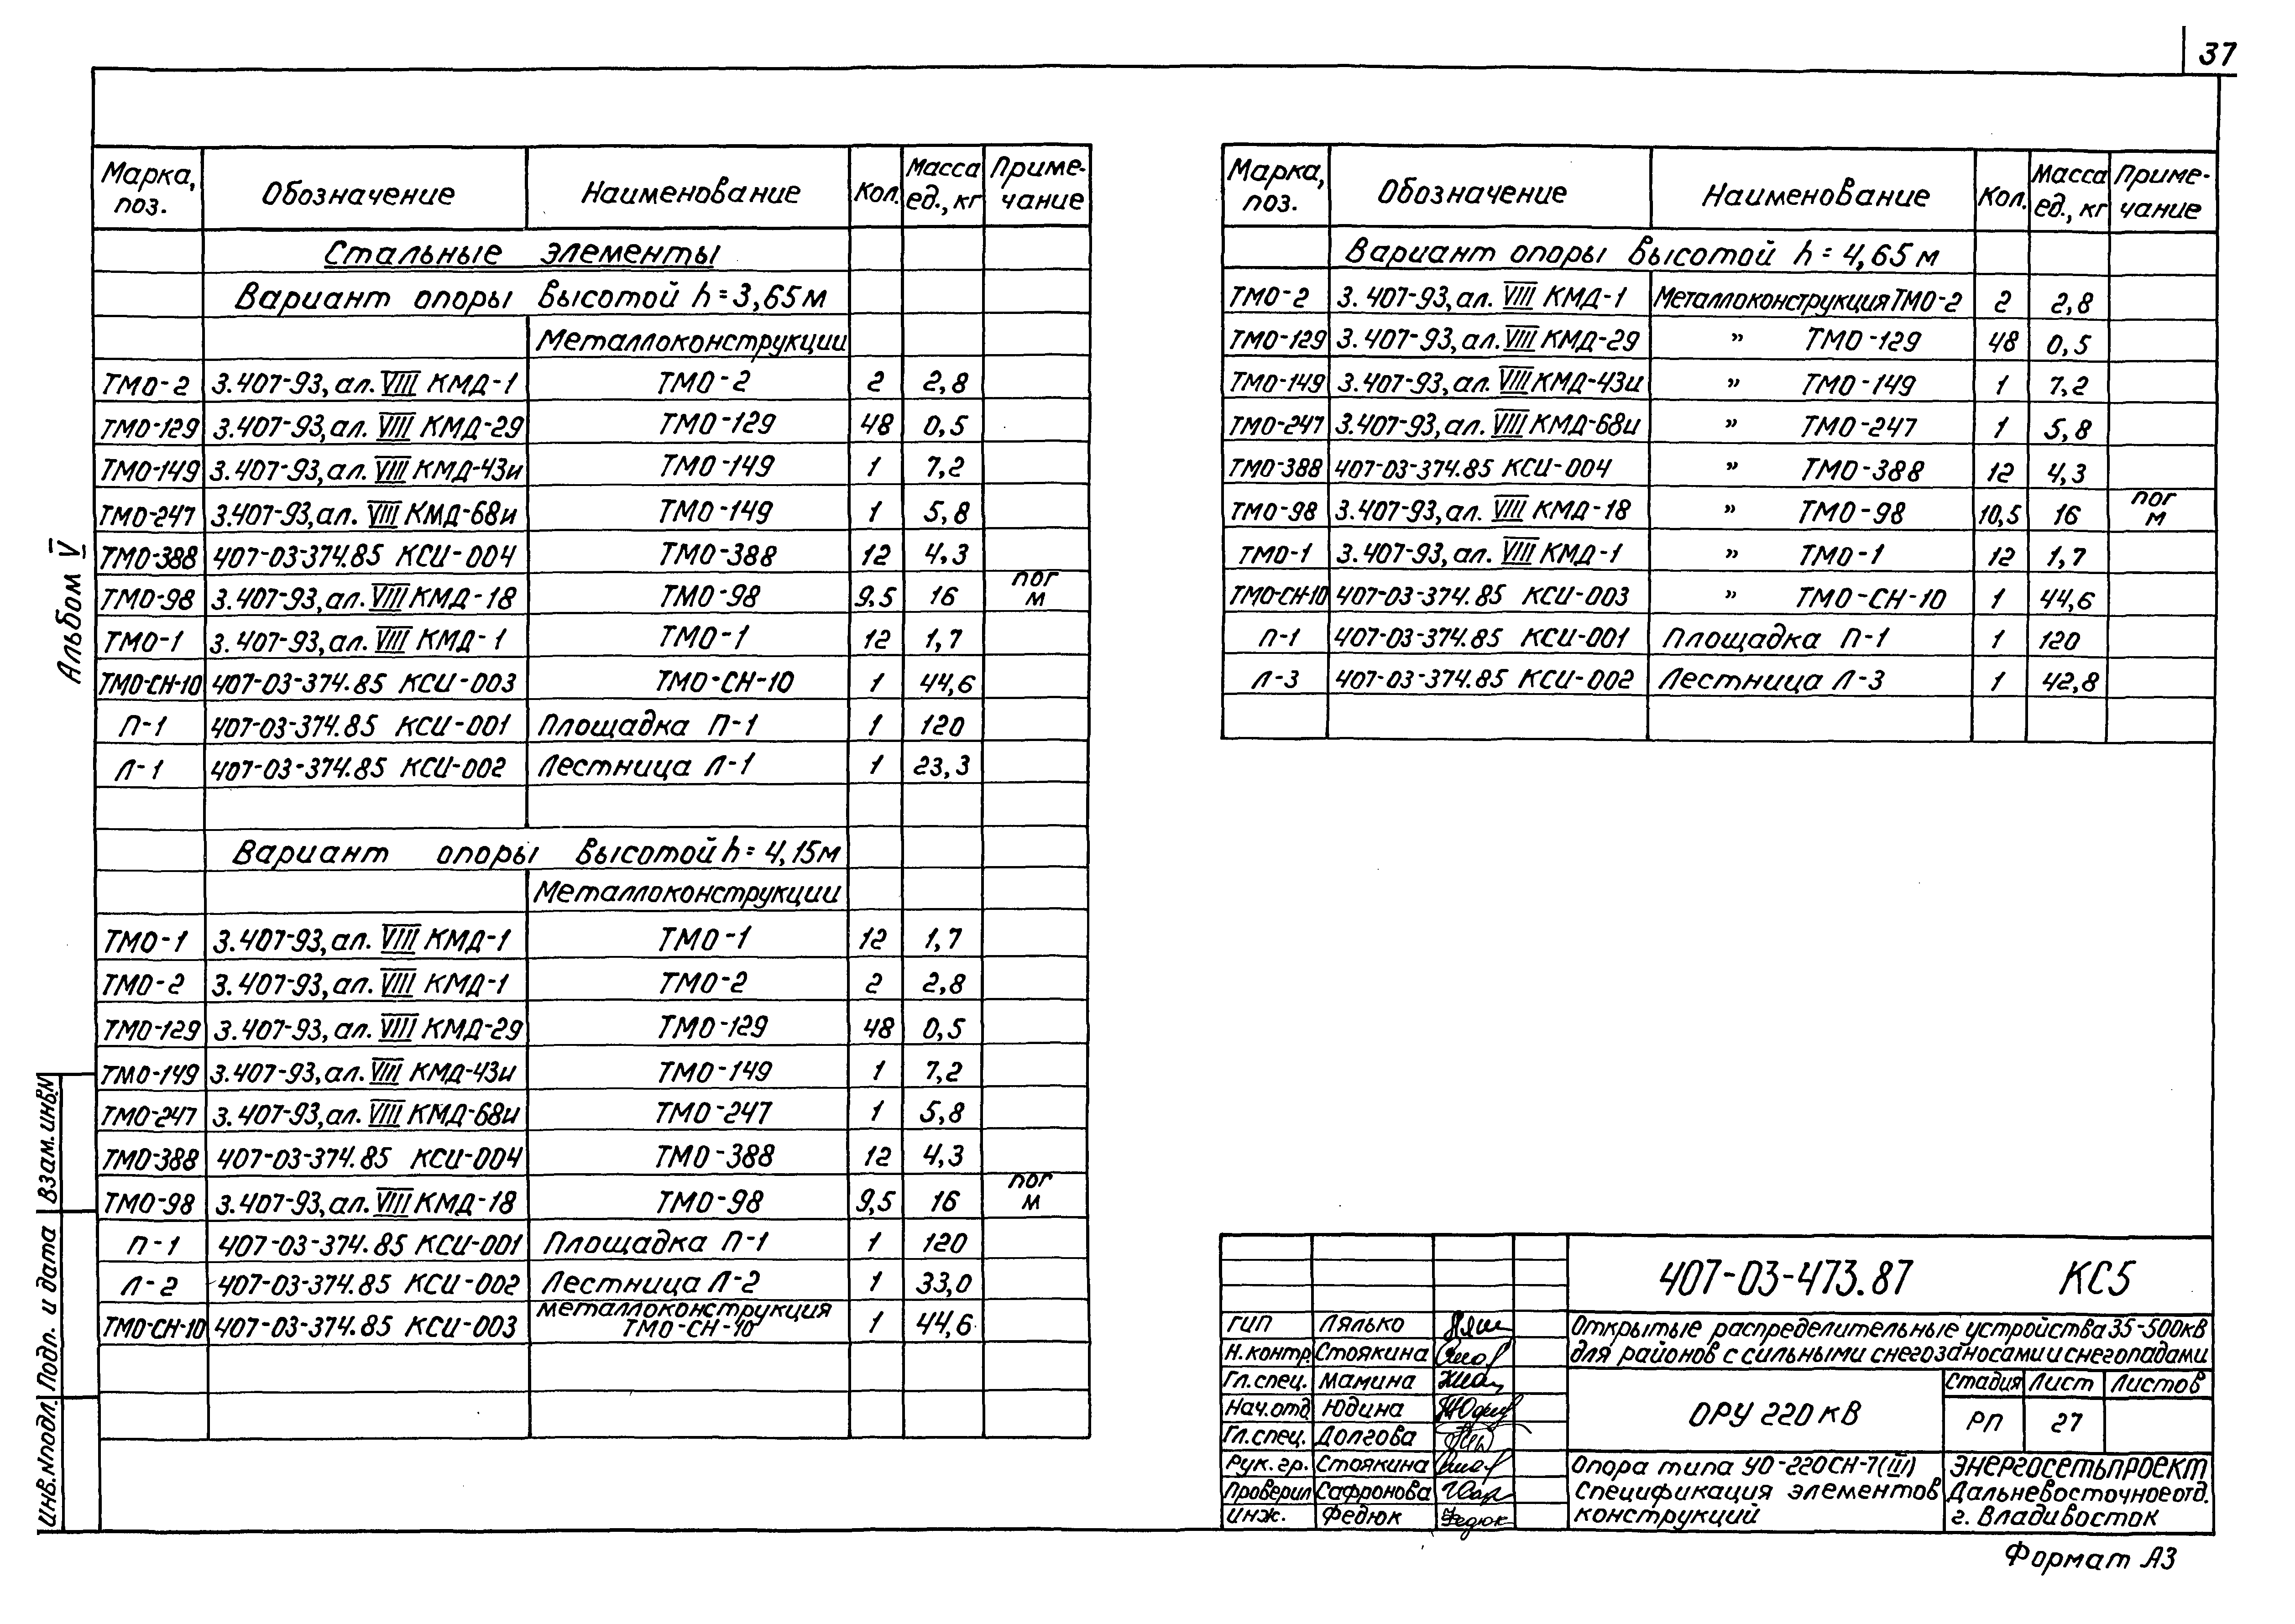 37
Альбом V
Марка, поз. Обозначение Наименование Кол. Масса ед., кг Примечание
Стальные элементы
Вариант опоры высотой h=3,65м
Металлоконструкции
ТМО-2 3.407-93, ал. VIII КМД-1 ТМО-2 2 2,8
ТМО-129 3.407-93, ал. VIII КМД-29 ТМО-129 48 0,5
ТМО-149 3.407-93, ал. VIII КМД-43и ТМО-149 1 7,2
ТМО-247 3.407-93, ал. VIII КМД-68и ТМО-149 1 5,8
ТМО-388 407-03-374.85 КСИ-004 ТМО-388 12 4,3
ТМО-98 3.407-93, ал. VIII КМД-18 ТМО-98 9,5 16 пог м
ТМО-1 3.407-93, ал. VIII КМД-1 ТМО-1 12 1,7
ТМО-СН-10 407-03-374.85 КСИ-003 ТМО-СН-10 1 44,6
П-1 407-03-374.85 КСИ-001 Площадка П-1 1 120
Л-1 407-03-374.85 КСИ-002 Лестница Л-1 1 23,3
Вариант опоры высотой h=4,15м
Металлоконструкции
ТМО-1 3.407-93, ал. VIII КМД-1 ТМО-1 12 1,7
ТМО-2 3.407-93, ал. VIII КМД-1 ТМО-2 2 2,8
ТМО-129 3.407-93, ал. VIII КМД-29 ТМО-129 48 0,5
ТМО-149 3.407-93, ал. VIII КМД-43и ТМО-149 1 7,2
ТМО-247 3.407-93, ал. VIII КМД-68и ТМО-247 1 5,8
ТМО-388 407-03-374.85 КСИ-004 ТМО-388 12 4,3
ТМО-98 3.407-93, ал. VIII КМД-18 ТМО-98 9,5 16 пог м
П-1 407-03-374.85 КСИ-001 Площадка П-1 1 120
Л-2 407-03-374.85 КСИ-002 Лестница Л-2 1 33,0
ТМО-СН-10 407-03-374.85 КСИ-003 металлоконструкция ТМО-СН-10 1 44,6
Марка, поз. Обозначение Наименование Кол. Масса ед., кг Примечание
Вариант опоры высотой h=4,65м
ТМО-2 3.407-93, ал. VIII КМД-1 Металлоконструкция ТМО-2 2 2,8
ТМО-129 3.407-93, ал. VIII КМД-29 " ТМО-129 48 0,5
ТМО-149 3.407-93, ал. VIII КМД-43и " ТМО-149 1 7,2
ТМО-247 3.407-93, ал. VIII КМД-68и " ТМО-247 1 5,8
ТМО-388 407-03-374.85 КСИ-004 " ТМО-388 12 4,3
ТМО-98 3.407-93, ал. VIII КМД-18 " ТМО-98 10,5 16 пог м
ТМО-1 3.407-93, ал. VIII КМД-1 " ТМО-1 12 1,7
ТМО-СН-10 407-03-374.85 КСИ-003 " ТМО-СН-10 1 44,6
П-1 407-03-374.85 КСИ-001 Площадка П-1 1 120
Л-3 407-03-374.85 КСИ-002 Лестница Л-3 1 42,8
Взам. инв.N
Подп. и дата
Инв.Nподл.
407-03-473.87 КС5
ГИП Лялько
Н.контр. Стоякина
Гл.спец. Мамина
Нач.отд Юдина
Гл.спец. Долгова
Рук.гр. Стоякина
Проверил Сафронова
Инж. Федюк Федюк
Открытые распределительные устройства 35-500кВ
для районов с сильными снегозаносами и снегопадами
ОРУ 220 кВ
Стадия Лист Листов
РП 27
Опора типа УО-220СН-7(III)
Спецификация элементов
конструкций
Энергосетьпроект
Дальневосточное отд.
г. Владивосток
Формат А3